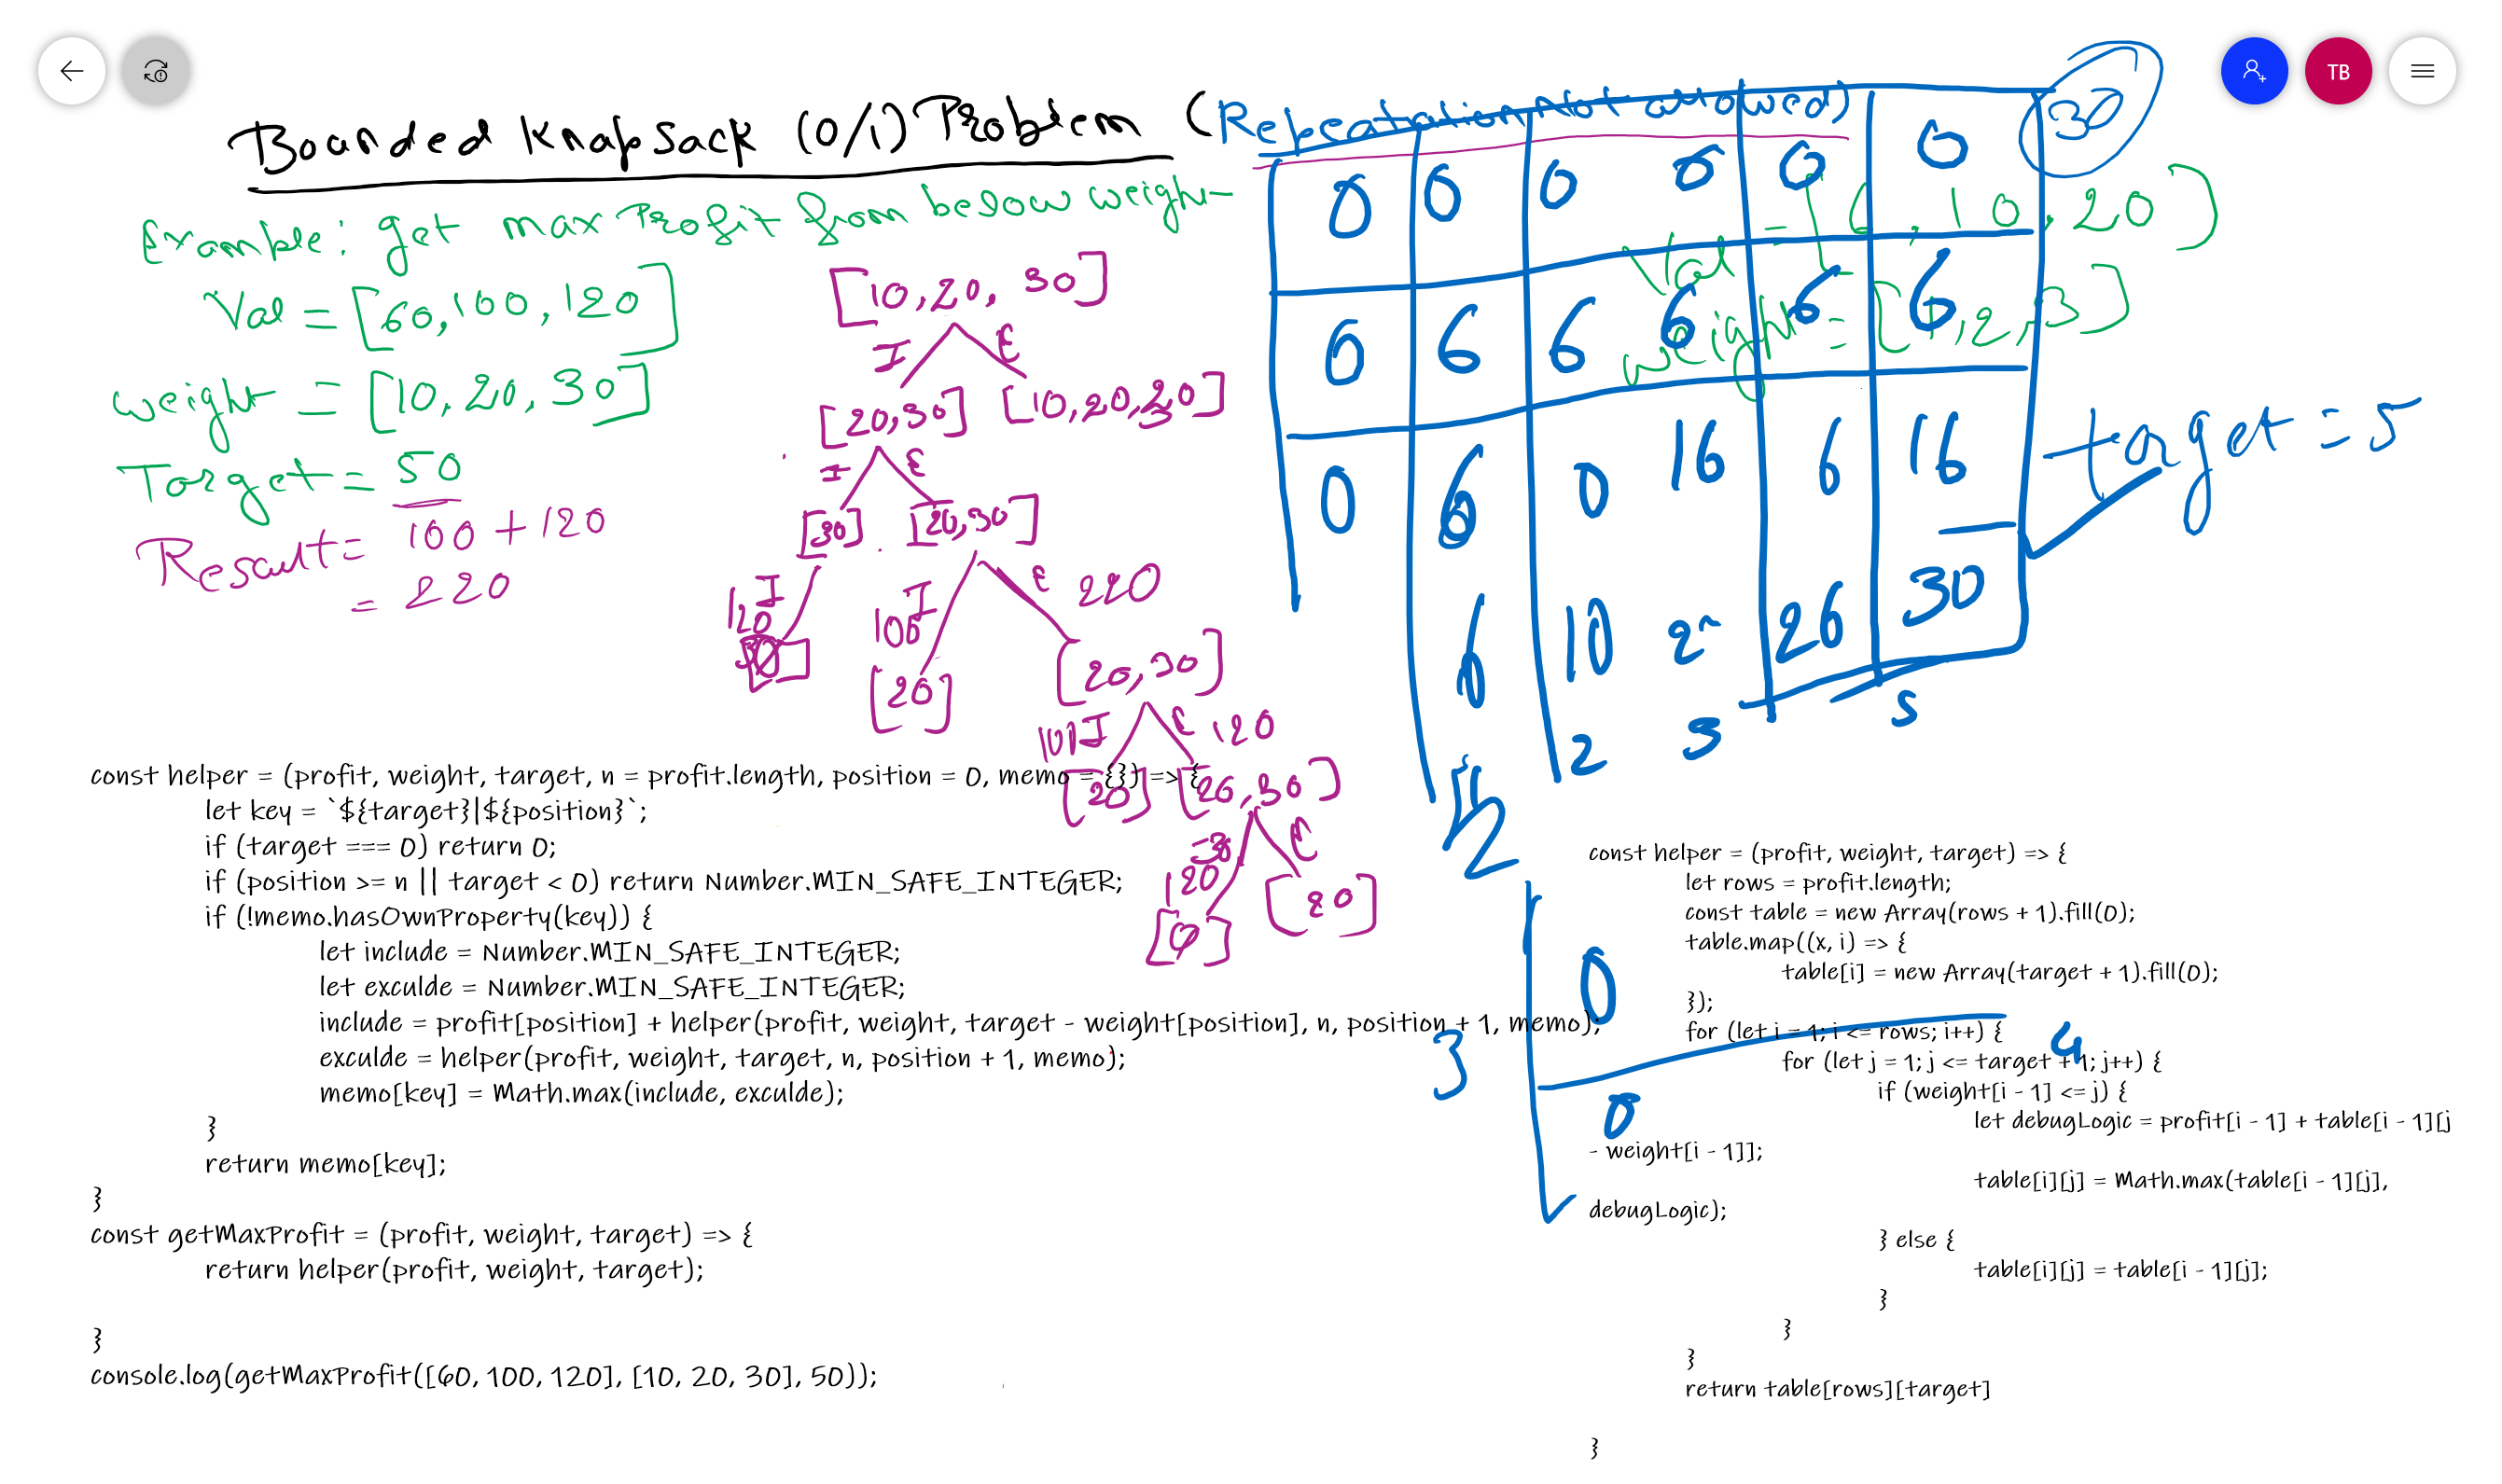 TB
Bounded Knapsack (0/1) Problem (Repeatation Not allowed)
30
Example: get max Profit from below weight
Val = [60, 100, 120]
weight = [10, 20, 30]
Target = 50
Result = 100 + 120
= 220
[10, 20, 30]
I E
[20, 30] [10, 20, 30]
I E
[30] [20, 30]
I
120
I
100
E 220
[20] [20, 30]
100 I E 120
[20] [20, 30]
-30
120
E
[φ] [20]
Val = [6, 10, 20]
weight = [1, 2, 3]
target = 5
0 0 0 0 0 0
0 6 6 6 6 6
0 6 0 16 6 16
6 10 26 30
2 3 5
0
3 4
0
const helper = (profit, weight, target, n = profit.length, position = 0, memo = {}) => {
let key = `${target}|${position}`;
if (target === 0) return 0;
if (position >= n || target < 0) return Number.MIN_SAFE_INTEGER;
if (!memo.hasOwnProperty(key)) {
let include = Number.MIN_SAFE_INTEGER;
let exculde = Number.MIN_SAFE_INTEGER;
include = profit[position] + helper(profit, weight, target - weight[position], n, position + 1, memo);
exculde = helper(profit, weight, target, n, position + 1, memo);
memo[key] = Math.max(include, exculde);
}
return memo[key];
}
const getMaxProfit = (profit, weight, target) => {
return helper(profit, weight, target);
}
console.log(getMaxProfit([60, 100, 120], [10, 20, 30], 50));
const helper = (profit, weight, target) => {
let rows = profit.length;
const table = new Array(rows + 1).fill(0);
table.map((x, i) => {
table[i] = new Array(target + 1).fill(0);
});
for (let i = 1; i <= rows; i++) {
for (let j = 1; j <= target + 1; j++) {
if (weight[i - 1] <= j) {
let debugLogic = profit[i - 1] + table[i - 1][j
- weight[i - 1]];
table[i][j] = Math.max(table[i - 1][j],
debugLogic);
} else {
table[i][j] = table[i - 1][j];
}
}
}
return table[rows][target]
}